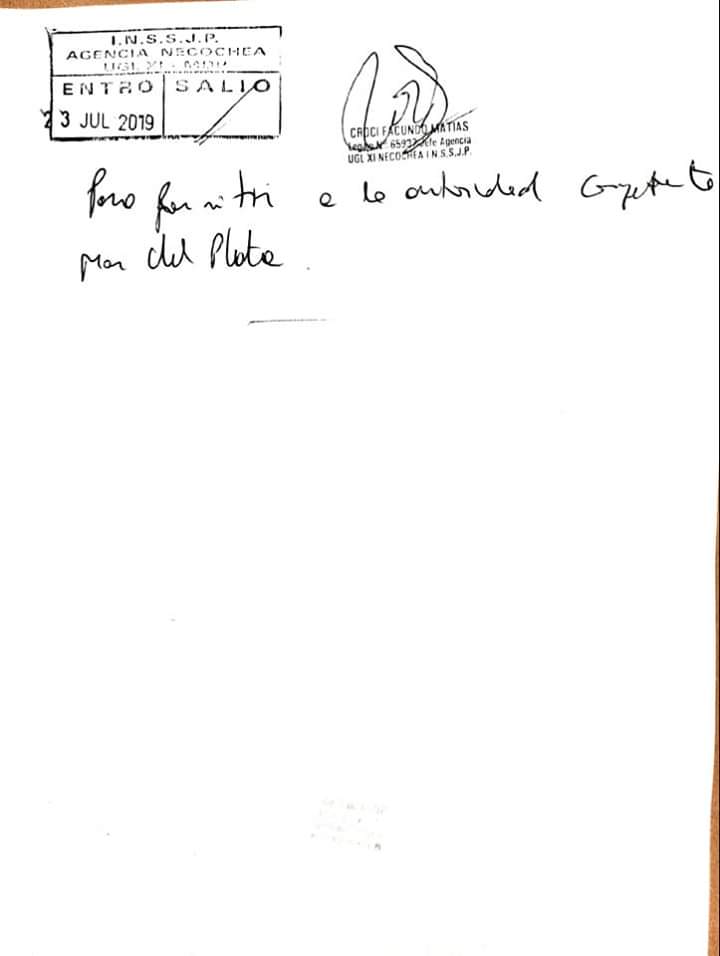 I.N.S.S.J.P.
AGENCIA NECOCHEA
UGL XI - MDP
ENTRO SALIO
23 JUL 2019
CROCI FACUNDO MATIAS
Legajo N° Jefe Agencia
UGL XI NECOCHEA I.N.S.S.J.P.
Para a la autoridad Competente
Mar del Plata.